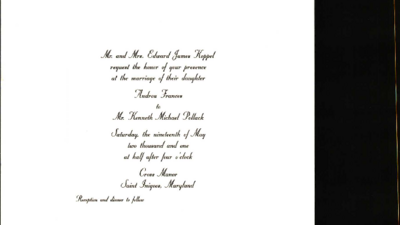 Mr. and Mrs. Edward James Koppel
request the honor of your presence
at the marriage of their daughter
Andrea Frances
to
Mr. Kenneth Michael Pollack
Saturday, the nineteenth of May
two thousand and one
at half after four o'clock
Cross Manor
Saint Inigoes, Maryland
Reception and dinner to follow